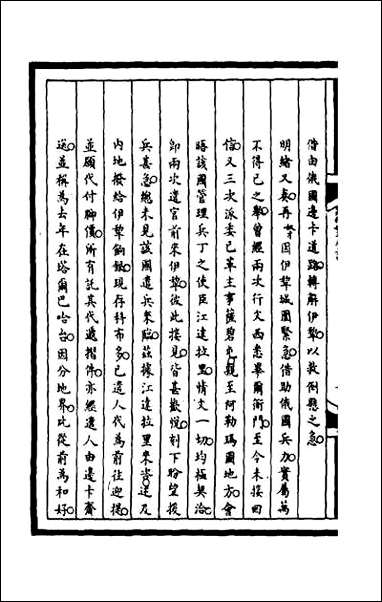 借由俄國邊卡道路轉解伊犂以救倒懸之急
明緒又奏再犂因伊犂城圍緊急借助俄國兵力實屬萬
不得已之舉曾經兩次行文西悉畢爾衙門至今未接回
信又三次派委已革主事薩碧屯親至阿勒瑪圖地方會
晤該國管理兵丁之使臣江達拉里情文一切均極契洽
即兩次遣官前來伊犂彼此接見皆甚歡悅刻下盼望援
兵甚急總未見該國遣兵來臨茲據江達拉里來咨送及
內地撥給伊犂餉銀現存科布多已遣人代為前往迎提
並願代付腳價所有託其代遞摺件亦經遣人由邊卡齎
送並稱為去年在塔爾巴哈台因分地界比從前為和好